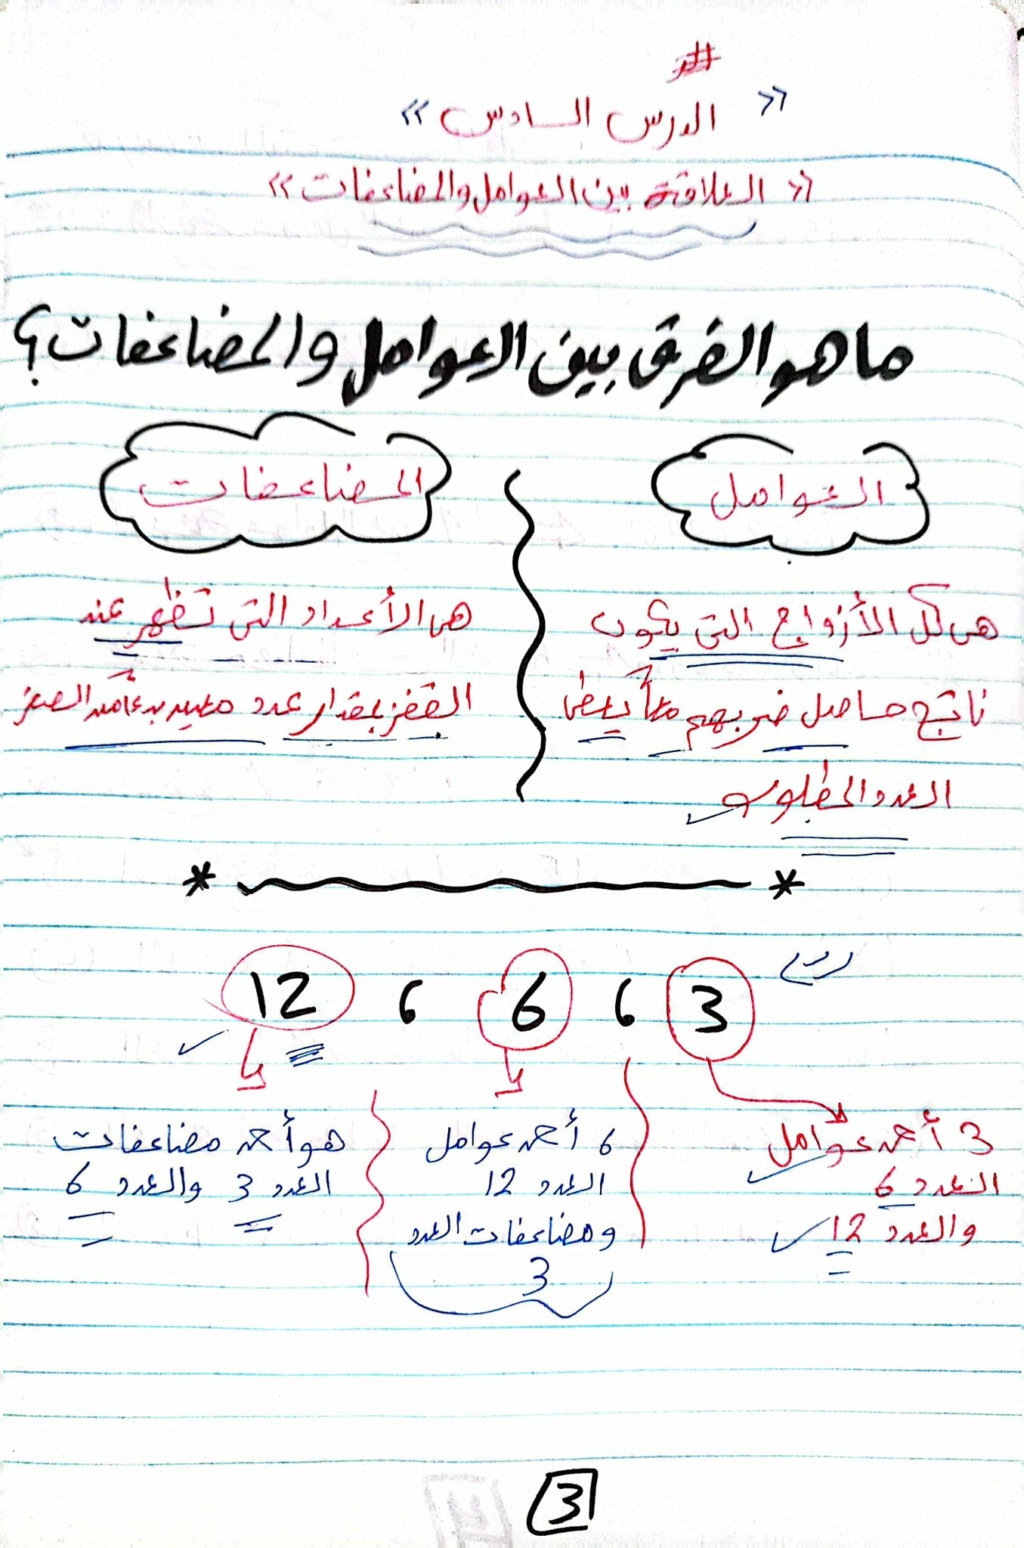 « الدرس السادس »
« العلاقة بين العوامل والمضاعفات »
ما هو الفرق بين العوامل والمضاعفات؟
العوامل
هى كل الأزواج التى يكون
ناتج حاصل ضربهم معاً يعطى
العدد المطلوب
المضاعفات
هى الأعداد التى تظهر عند
القفز بمقدار عدد معين بداية من الصفر
* *
3 ، 6 ، 12
3 أحد عوامل
العدد 6
والعدد 12
6 أحد عوامل
العدد 12
ومضاعفات العدد
3
هو أحد مضاعفات
العدد 3 والعدد 6
3